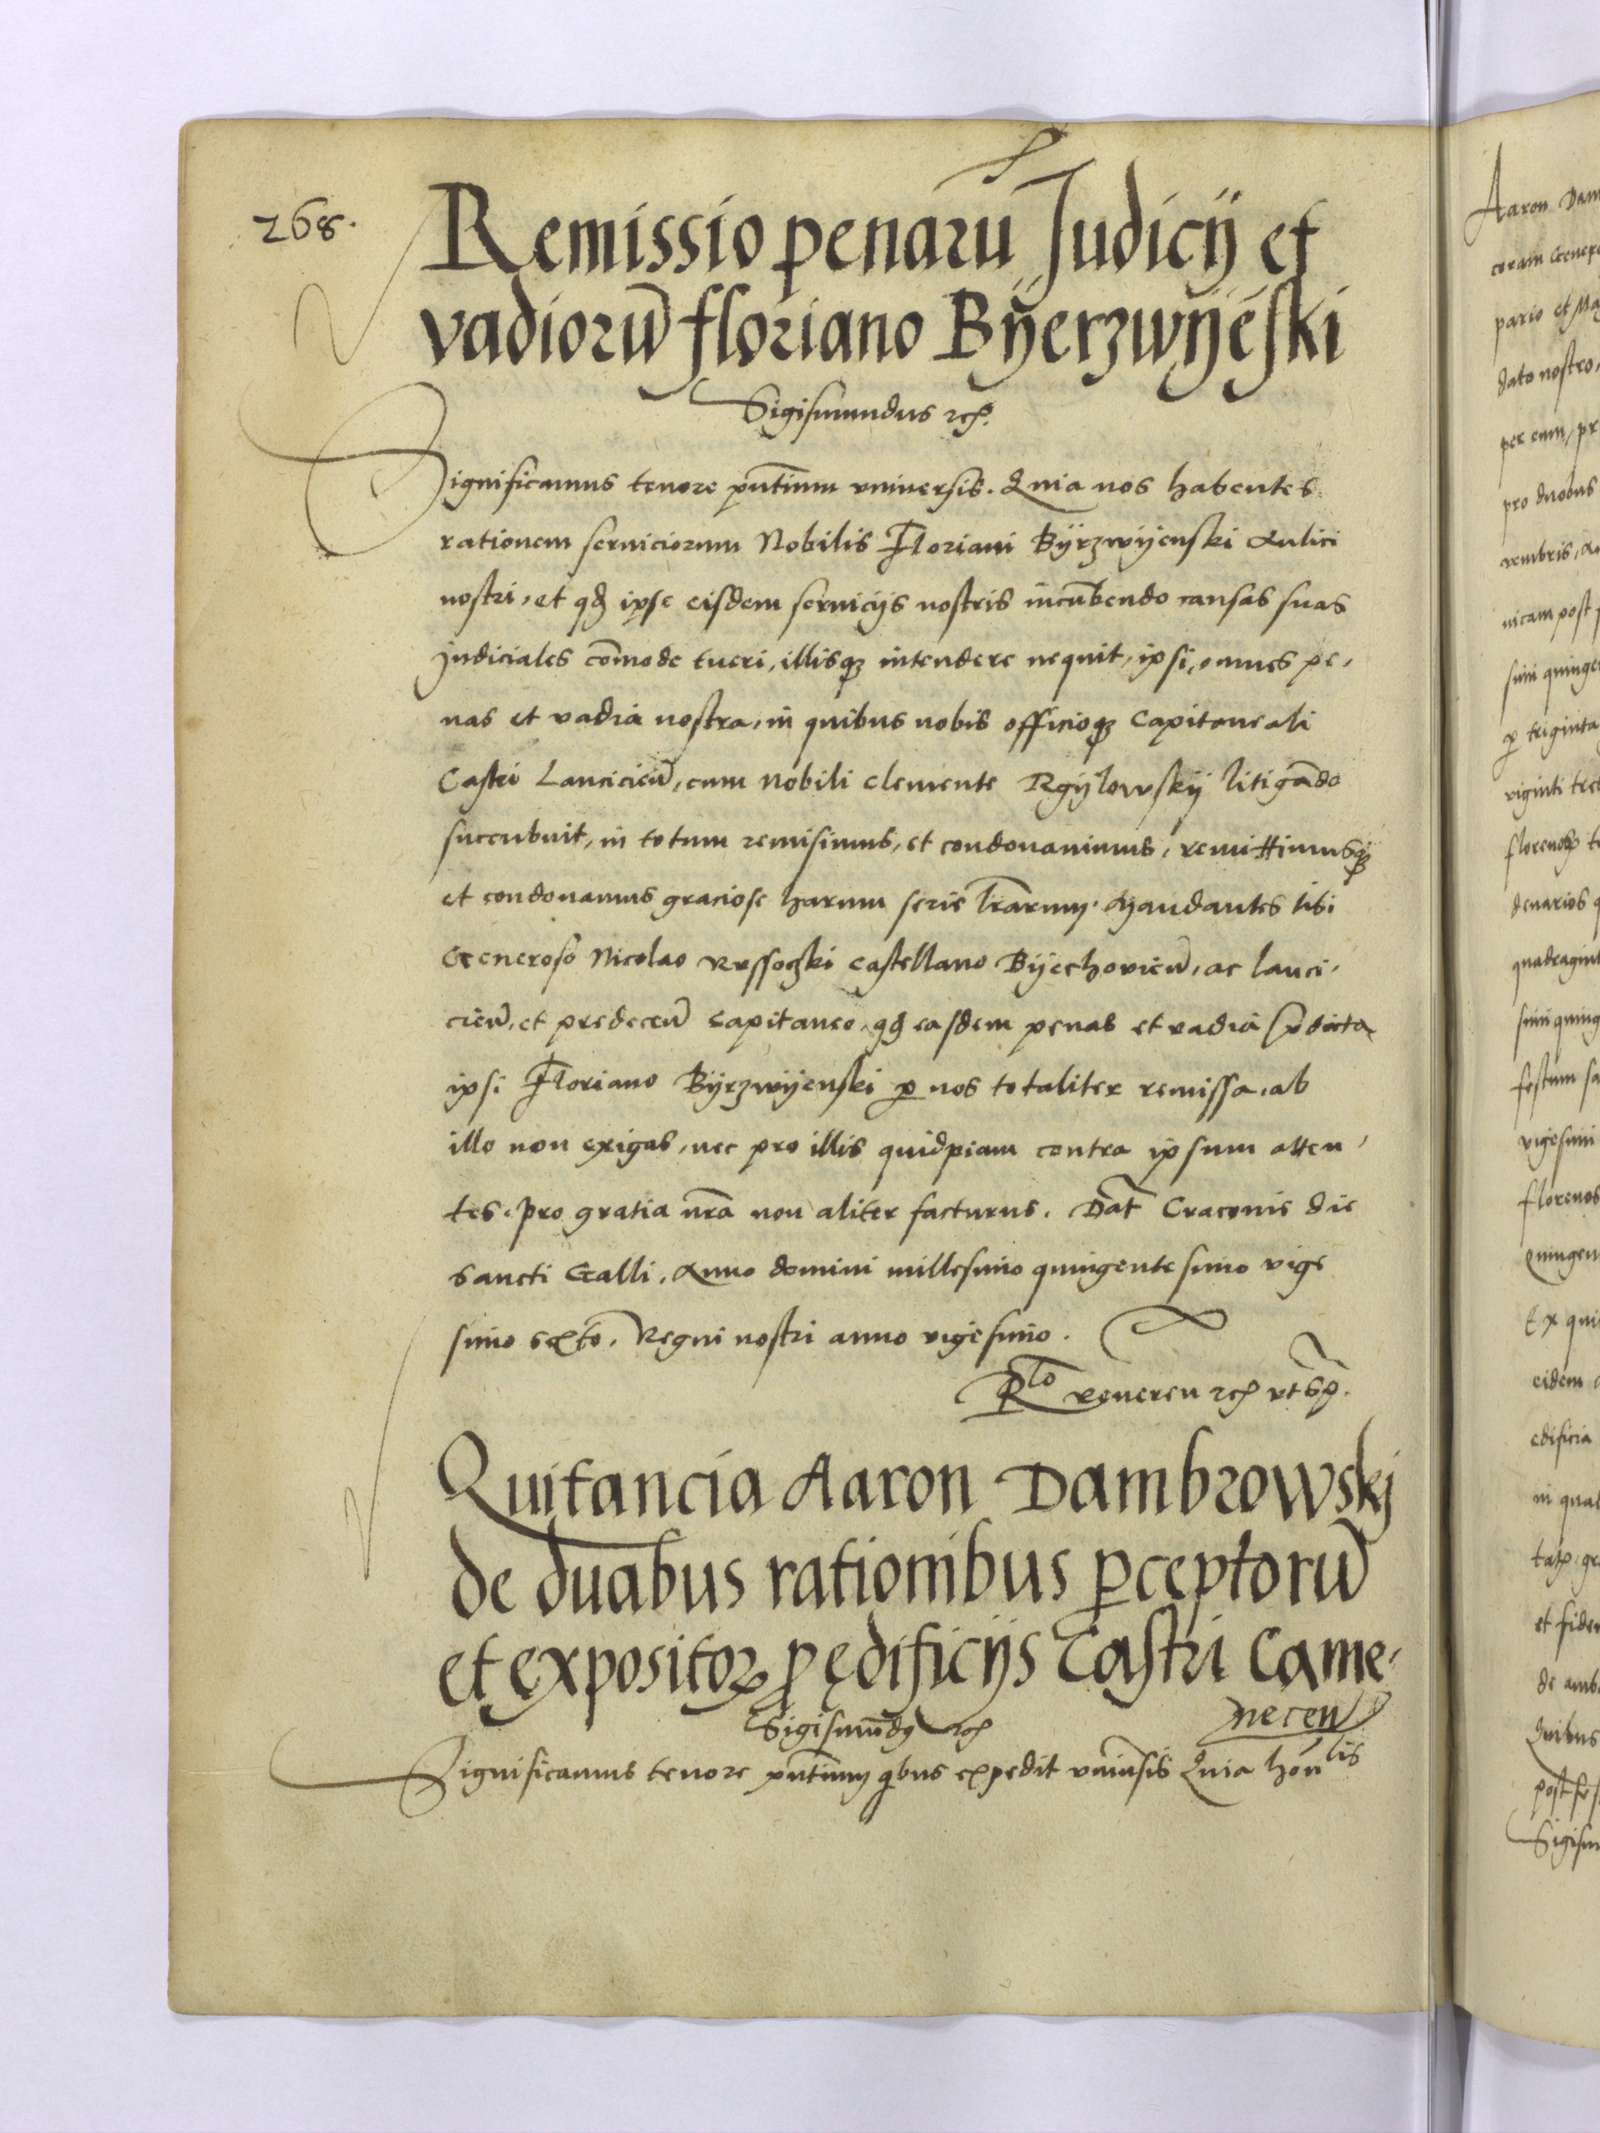 268.
Remissio penarū Judicij et
vadiorū floriano Bÿerzwÿēski
Sigismundus rex etc.
Significamus tenore pn̄tium vniuersis. Quia nos habentes
rationem seruiciorum Nobilis Floriani Bÿrzwÿenski Aulici
nostri, et qđ ipse eisdem seruicijs nostris incūbendo causas suas
judiciales cōmode tueri, illisqȝ intendere nequit, ipsi omnes pe,
nas et vadia nostra, in quibus nobis officioqȝ Capitaneali
Castri Lancicień, cum Nobili Clemente Rgÿlowskÿ litigādo
succubuit, in totum remisimus, et condonauimus, remittimusqȝ
et condonamus graciose harum serie lr̄arum. Mandantes tibi
Generoso Nicolao Russoczki castellano Bÿechouień, ac lanci,
cień, et predeceń Capitaneo, qđ easdem penas et vadia p̄dicta
ipsi Floriano Bÿrzwÿenski ꝑ nos totaliter remissa, ab
illo non exigas, nec pro illis quidpiam contra ipsum atten,
tes. pro gratia nr̄a non aliter facturus. Dat̄ Cracouie die
sancti Galli. Anno domini millesimo quingentesimo vige
simo sexto. Regni nostri anno vigesimo.
Rlo Reueren etc ut sᵖ.
Quitancia Aaron Dambrowskj
de duabus rationibus ꝑceptorū
et expositoꝝ ꝓ ędificijs Castri Came,
neceń
Sigismūdꝰ etc
Significamus tenore pn̄tium qibus expedit vniūsis Quia honlis
Aaron Dam
coram Genero
pario et Ma
dato nostro,
per eum, pr
pro duobus
nicam post
simi quinge
ꝑ triginta
viginti tre
florenoꝝ
denarios
quadragint
simi quing
festum sa
vigesimi
florenos
Quingen
Ex qui
eidem
edificia
in qua
et fide
de amb
Quibus
post
Sigism